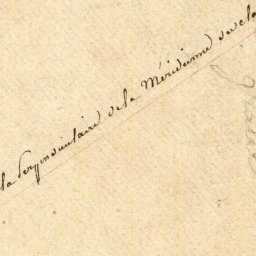 la Perpendiculaire de la Méridienne de